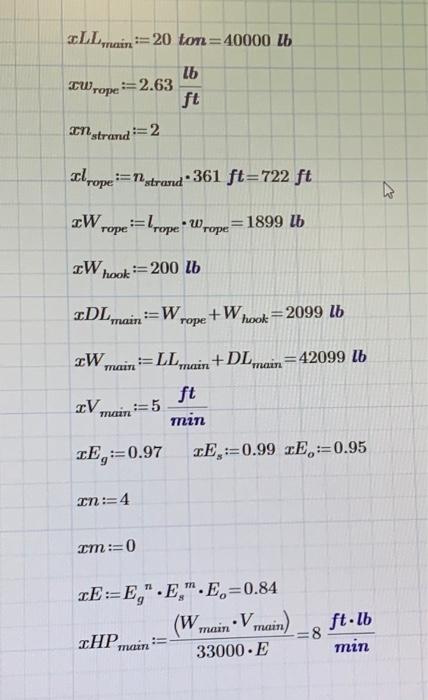 xLL_main := 20 ton = 40000 lb
xw_rope := 2.63 lb/ft
xn_strand := 2
xl_rope := n_strand · 361 ft = 722 ft
xW_rope := l_rope · w_rope = 1899 lb
xW_hook := 200 lb
xDL_main := W_rope + W_hook = 2099 lb
xW_main := LL_main + DL_main = 42099 lb
xV_main := 5 ft/min
xE_g := 0.97 xE_s := 0.99 xE_o := 0.95
xn := 4
xm := 0
xE := E_g^n · E_s^m · E_o = 0.84
xHP_main := (W_main · V_main)/(33000 · E) = 8 ft·lb/min